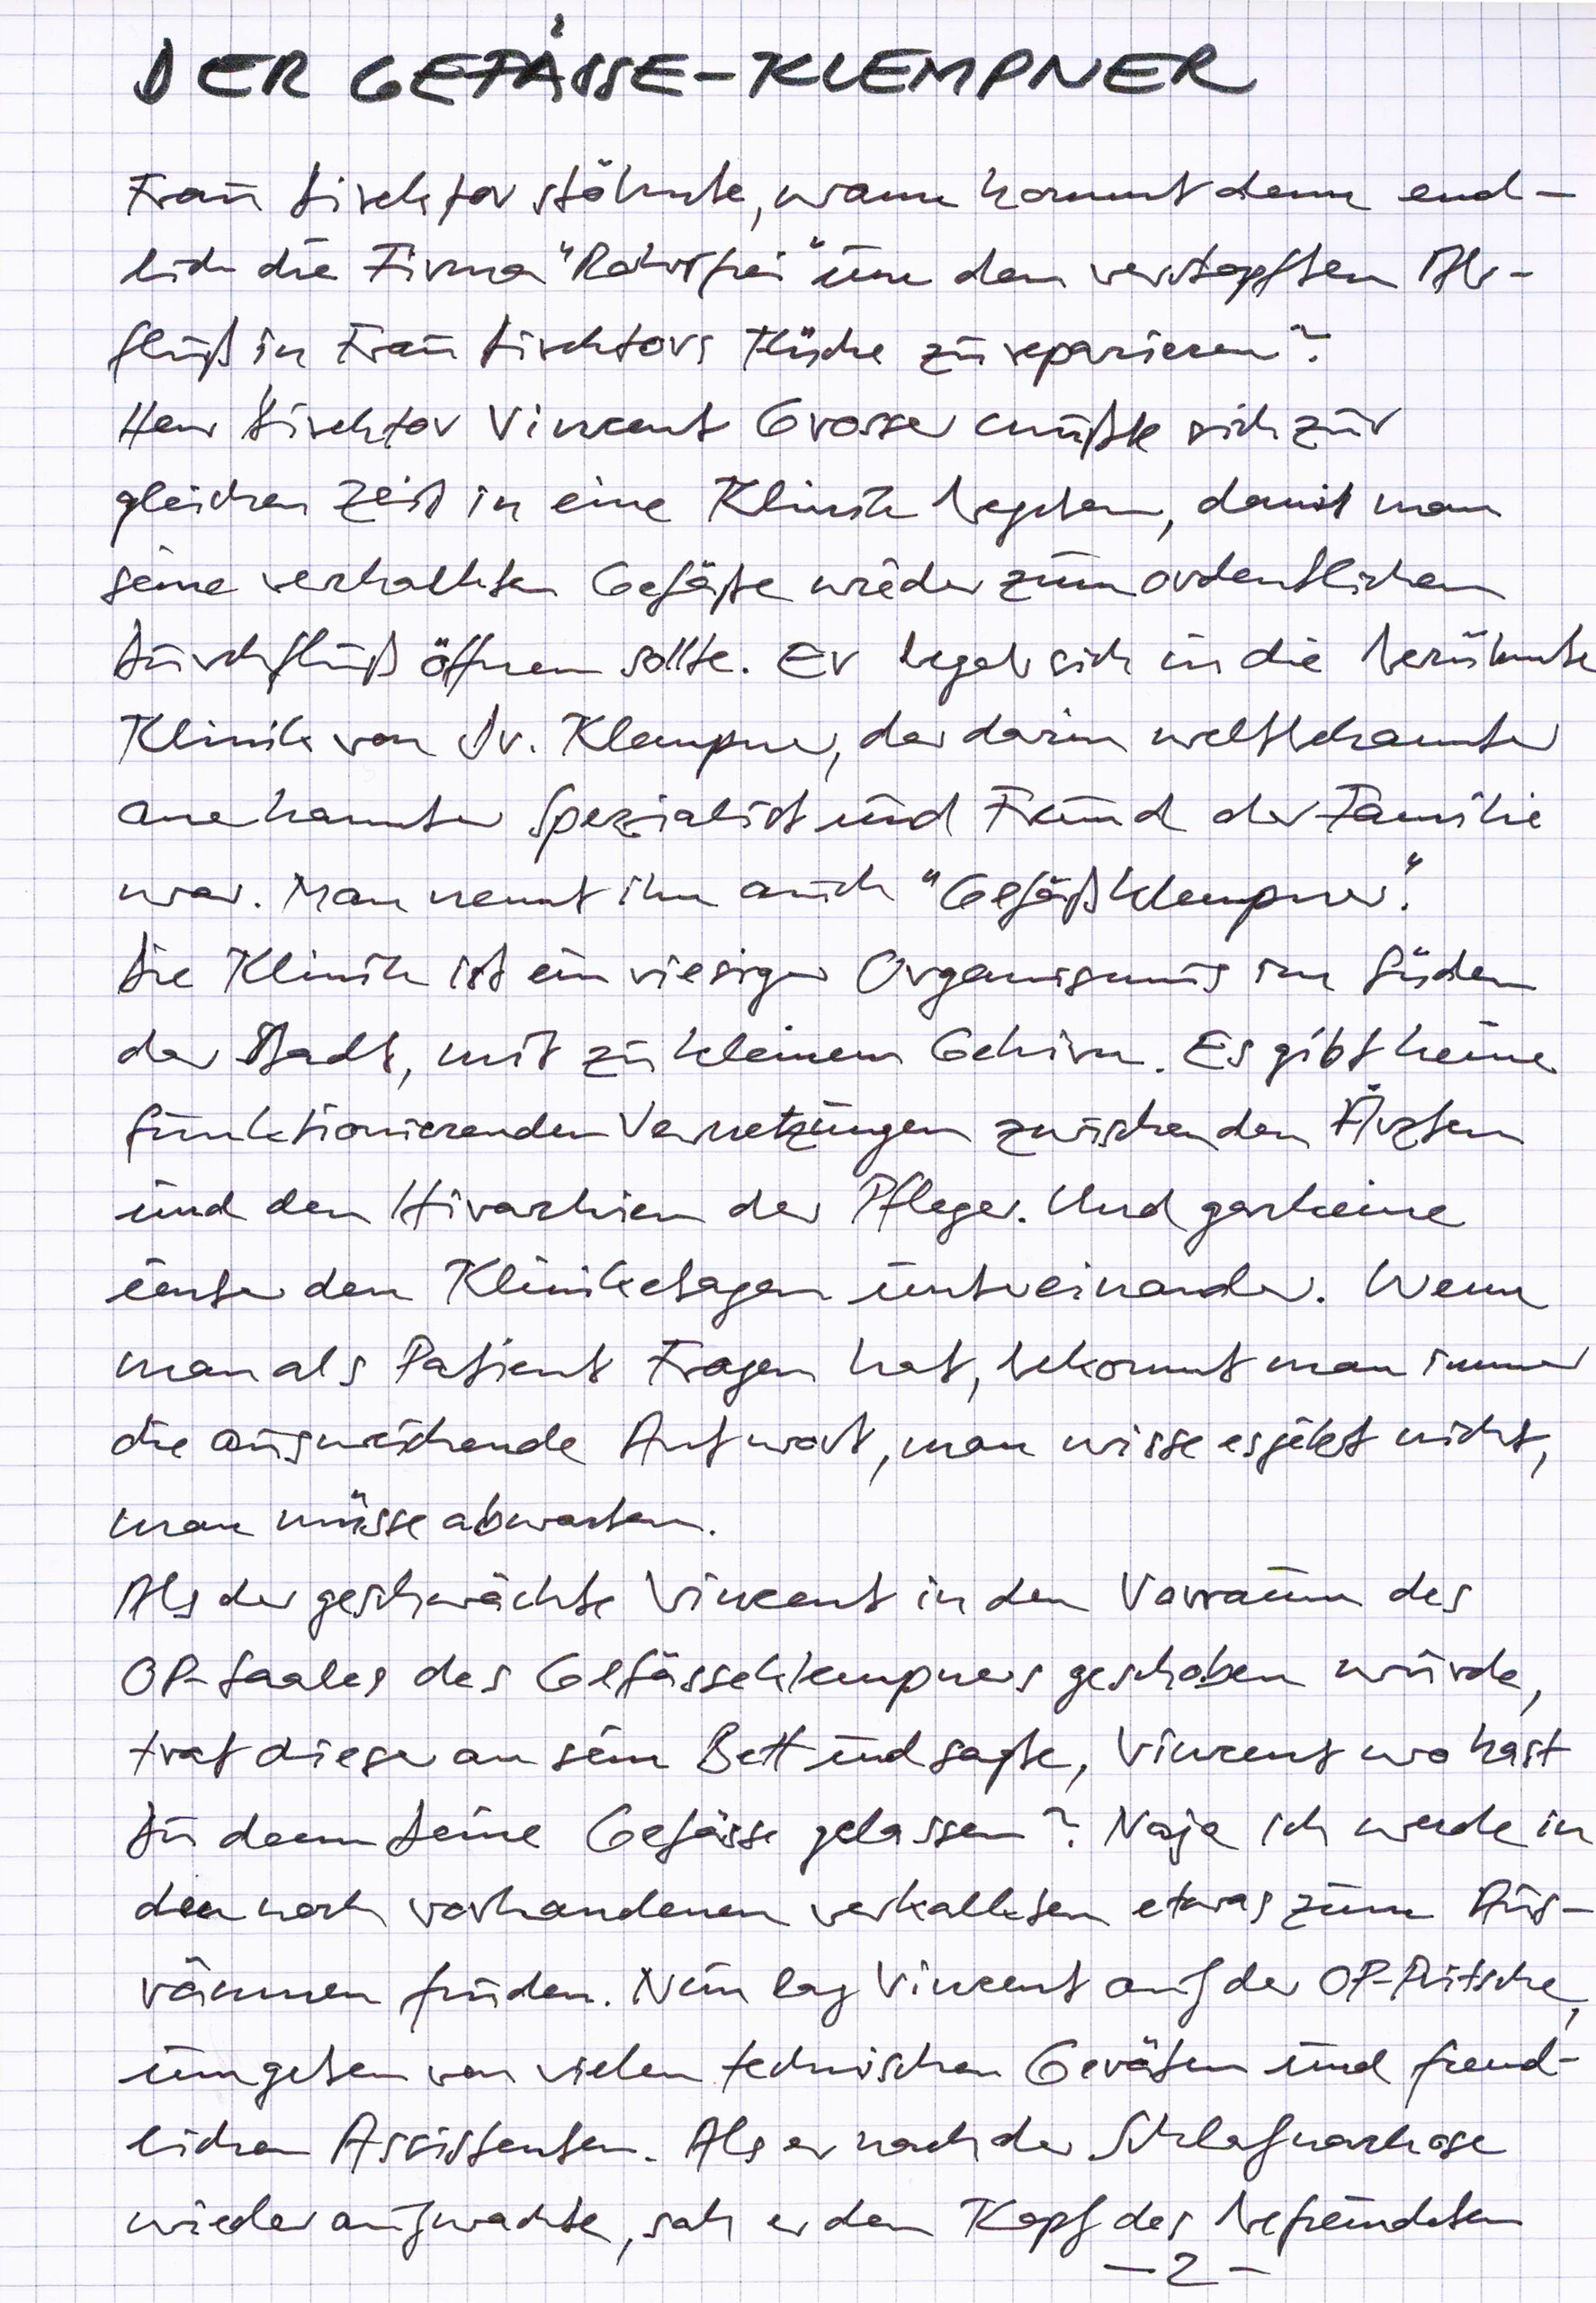 DER GEFÄSSE-KLEMPNER
Frau Direktor stöhnte, wann kommt denn end-
lich die Firma "Rohrfrei" um den verstopften Ab-
fluß in Frau Direktors Küche zu reparieren?
Herr Direktor Vincent Grosser mußte sich zur
gleichen Zeit in eine Klinik begeben, damit man
seine verkalkten Gefäße wieder zum ordentlichen
Durchfluß öffnen sollte. Er begab sich in die berühmte
Klinik von Dr. Klempner, der darin weltbekannter
anerkannter Spezialist und Freund der Familie
war. Man nennt ihn auch "Gefäßklempner".
Die Klinik ist ein riesiger Organismus im Süden
der Stadt, mit zu kleinem Gehirn. Es gibt keine
funktionierenden Vernetzungen zwischen den Ärzten
und den Hirarkien der Pfleger. Und garkeine
unter den Kliniketagen untereinander. Wenn
man als Patient Fragen hat, bekommt man immer
die ausweichende Antwort, man wisse es jetzt nicht,
man müsse abwarten.
Als der geschwächte Vincent in den Vorraum des
OP-Saales des Gefässeklempners geschoben wurde,
trat dieser an sein Bett und sagte, Vincent wo hast
Du denn Deine Gefässe gelassen? Naja ich werde in
den noch vorhandenen verkalkten etwas zum Aus-
räumen finden. Nun lag Vincent auf der OP-Pritsche,
umgeben von vielen technischen Geräten und freund-
lichen Assistenten. Als er nach der Schlafnarkose
wieder aufwachte, sah er den Kopf des befreundeten
- 2 -